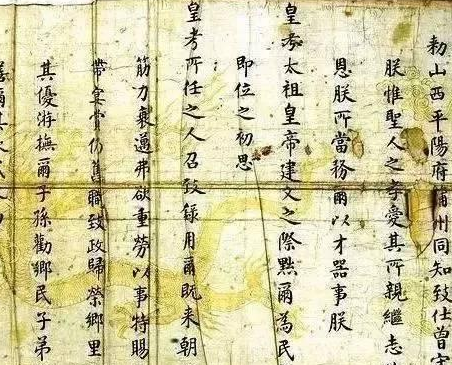 勅山西平陽府蒲州同知致仕曾
朕惟聖人之孝愛其所親繼志
恩朕所當務爾以才器事朕
皇考太祖皇帝建文之際黜爾為民
即位之初思
皇考所任之人召致錄用爾既来朝
筋力衰邁弗欲重勞以事特賜
帶宴賞仍舊職致政歸榮鄉里
其優游撫爾子孫勸鄉民子弟